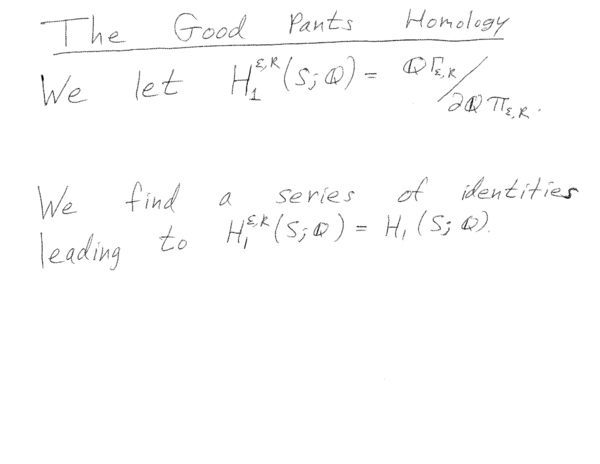 The Good Pants Homology
We let H₁^{ε,R}(S;ℚ) = ℚΓ_{ε,R}/∂ℚΠ_{ε,R}.
We find a series of identities
leading to H₁^{ε,R}(S;ℚ) = H₁(S;ℚ).